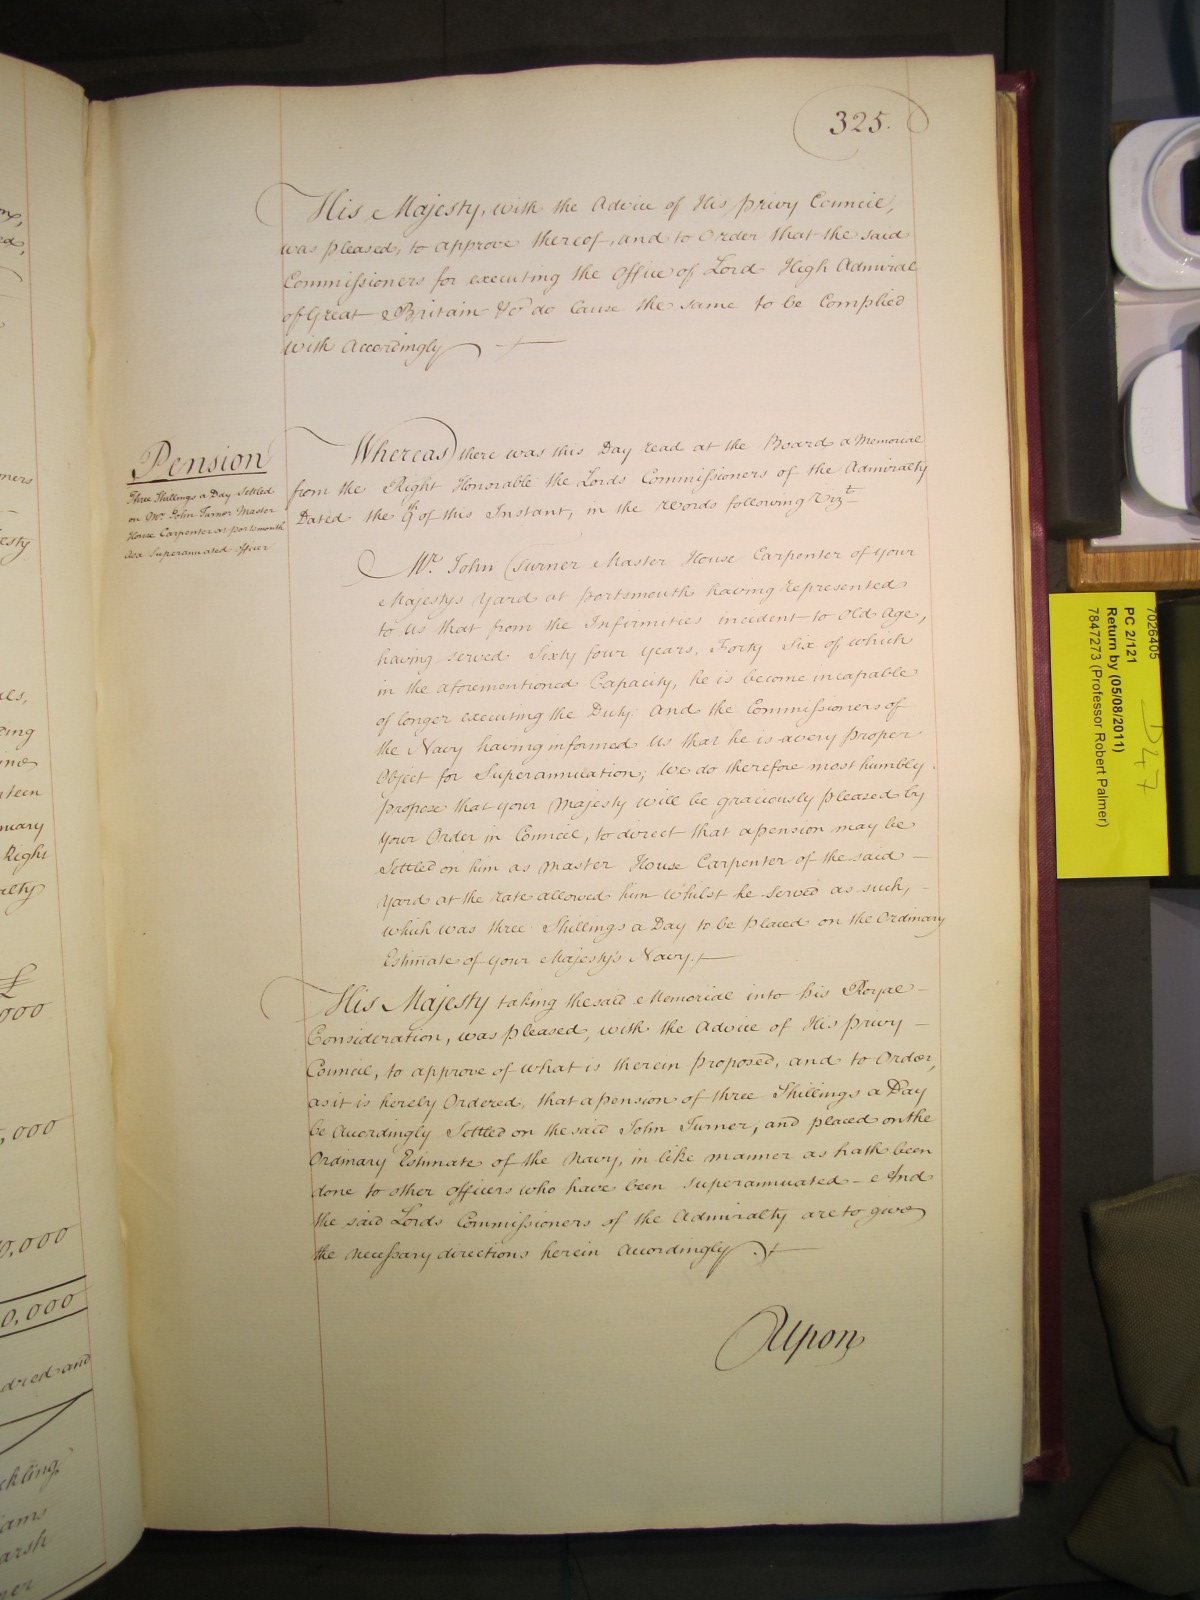 325.
His Majesty, with the Advice of His Privy Council,
was pleased, to approve thereof, and to Order that the said
Commissioners for executing the Office of Lord High Admiral
of Great Britain &c do Cause the same to be Complied
with Accordingly
Pension
Three Shillings a Day Settled
on Mr. John Turner Master
House Carpenter at Portsmouth
as a Superannuated Officer
Whereas there was this Day read at the Board a Memorial
from the Right Honorable the Lords Commissioners of the Admiralty
Dated the 9th of this Instant, in the Words following Vizt
Mr. John Turner Master House Carpenter of Your
Majestys Yard at Portsmouth having represented
to Us that from the Infirmities incident to Old Age,
having served Sixty four years, Forty Six of which
in the aforementioned Capacity, he is become incapable
of longer executing the Duty: And the Commissioners of
the Navy having informed Us that he is a very proper
Object for Superannuation; We do therefore most humbly
propose that your Majesty will be graciously pleased by
Your Order in Council, to direct that a pension may be
Settled on him as Master House Carpenter of the said
Yard at the rate allowed him Whilst he Served as such,
which was three Shillings a Day to be placed on the Ordinary
Estimate of your Majesty's Navy.
His Majesty taking the said Memorial into his Royal
Consideration, was pleased, with the Advice of His Privy
Council, to approve of what is therein Proposed, and to Order,
as it is hereby Ordered, that a pension of three Shillings a Day
be Accordingly Settled on the said John Turner, and placed on the
Ordinary Estimate of the Navy, in like manner as hath been
done to other Officers who have been Superannuated – And
the said Lords Commissioners of the Admiralty are to give
the necessary directions herein Accordingly.
Upon
7026405
PC 2/121
Return by (05/08/2011)
7847273 (Professor Robert Palmer)
D47